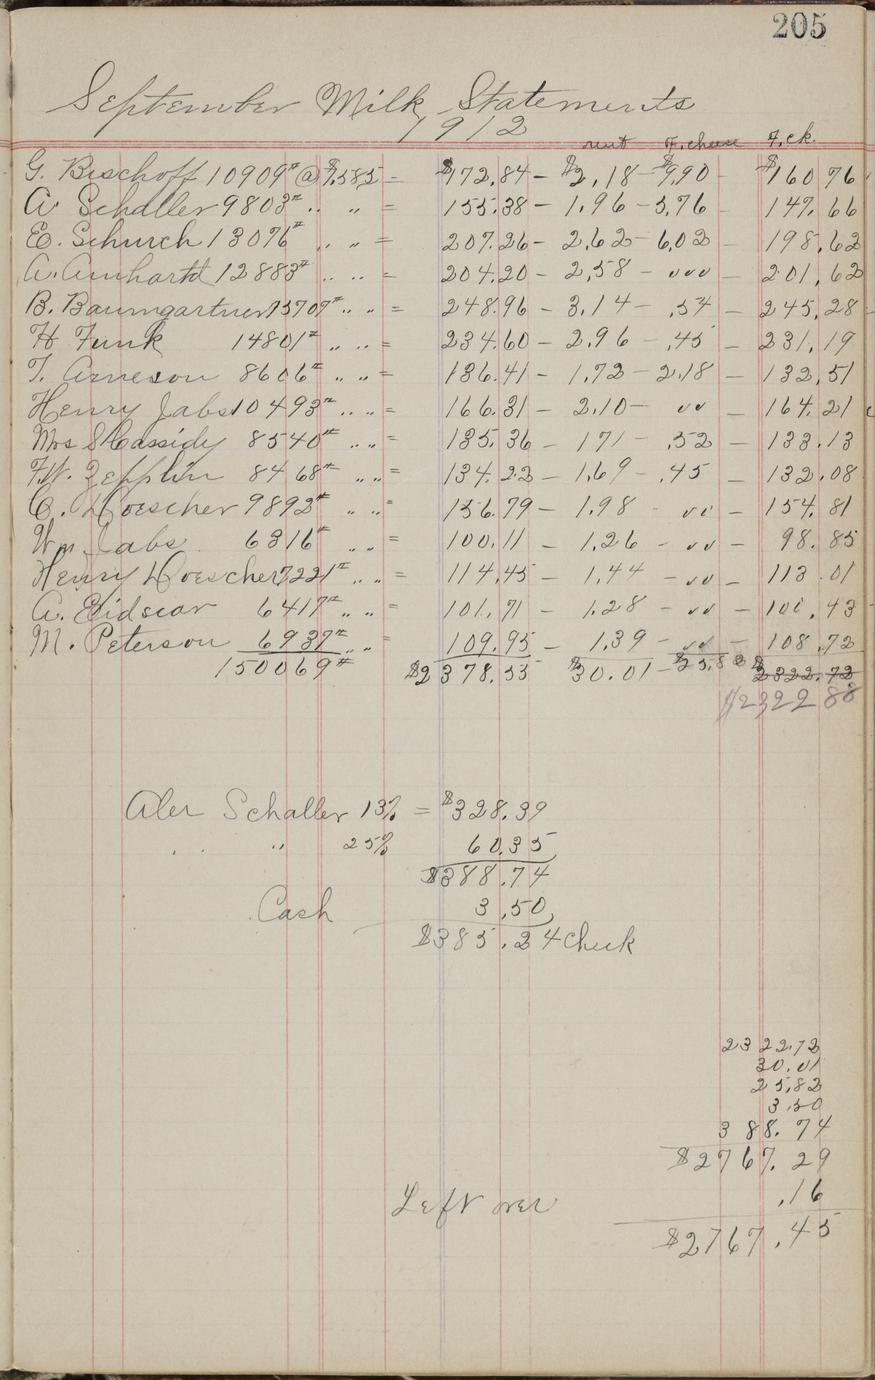 205
September Milk Statements
1912
rent F. cheese F. ck.
G. Bischoff 10909# @ $1.585 = $172.84 - $2.18 - 9.90 - $160.76
A Schaller 9803# .. .. = 155.38 - 1.96 - 5.76 - 147.66
E. Schurch 13076# .. .. = 207.26 - 2.62 - 6.02 - 198.62
A. Amhartd 12883# .. .. = 204.20 - 2.58 - ✓✓✓ - 201.62
B. Baumgartner 15707# .. .. = 248.96 - 3.14 - .54 - 245.28
H Funk 14801# .. .. = 234.60 - 2.96 - .45 - 231.19
T. Arneson 8606# .. .. = 136.41 - 1.72 - 2.18 - 132.51
Henry Jabs 10493# .. .. = 166.31 - 2.10 - ✓✓ - 164.21
Mrs S Cassidy 8540# .. .. = 135.36 - 171 - .52 - 133.13
F.W. Zepplin 8468# .. .. = 134.22 - 1.69 - .45 - 132.08
C. Doescher 9892# .. .. = 156.79 - 1.98 - ✓✓ - 154.81
Wm Jabs 6316# .. .. = 100.11 - 1.26 - ✓✓ - 98.85
Henry Doescher 7221# .. .. = 114.45 - 1.44 - ✓✓ - 113.01
A. Eidscar 6417# .. .. = 101.71 - 1.28 - ✓✓ - 100.43
M. Peterson 6937# .. .. = 109.95 - 1.39 - ✓✓ - 108.72
150069# $2378.55 $30.01 - $25.82 $2322.72
$2322 88
Aler Schaller 13% = $328.39
. .. 25% 60.35
$388.74
Cash 3.50
$385.24 check
2322.72
30.01
25.82
3.50
388.74
$2767.29
Left over .16
$2767.45